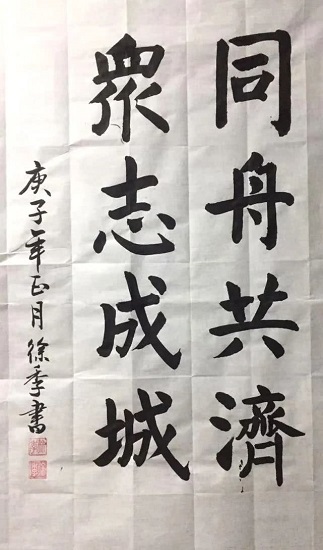 同舟共濟
衆志成城
庚子年正月徐季書